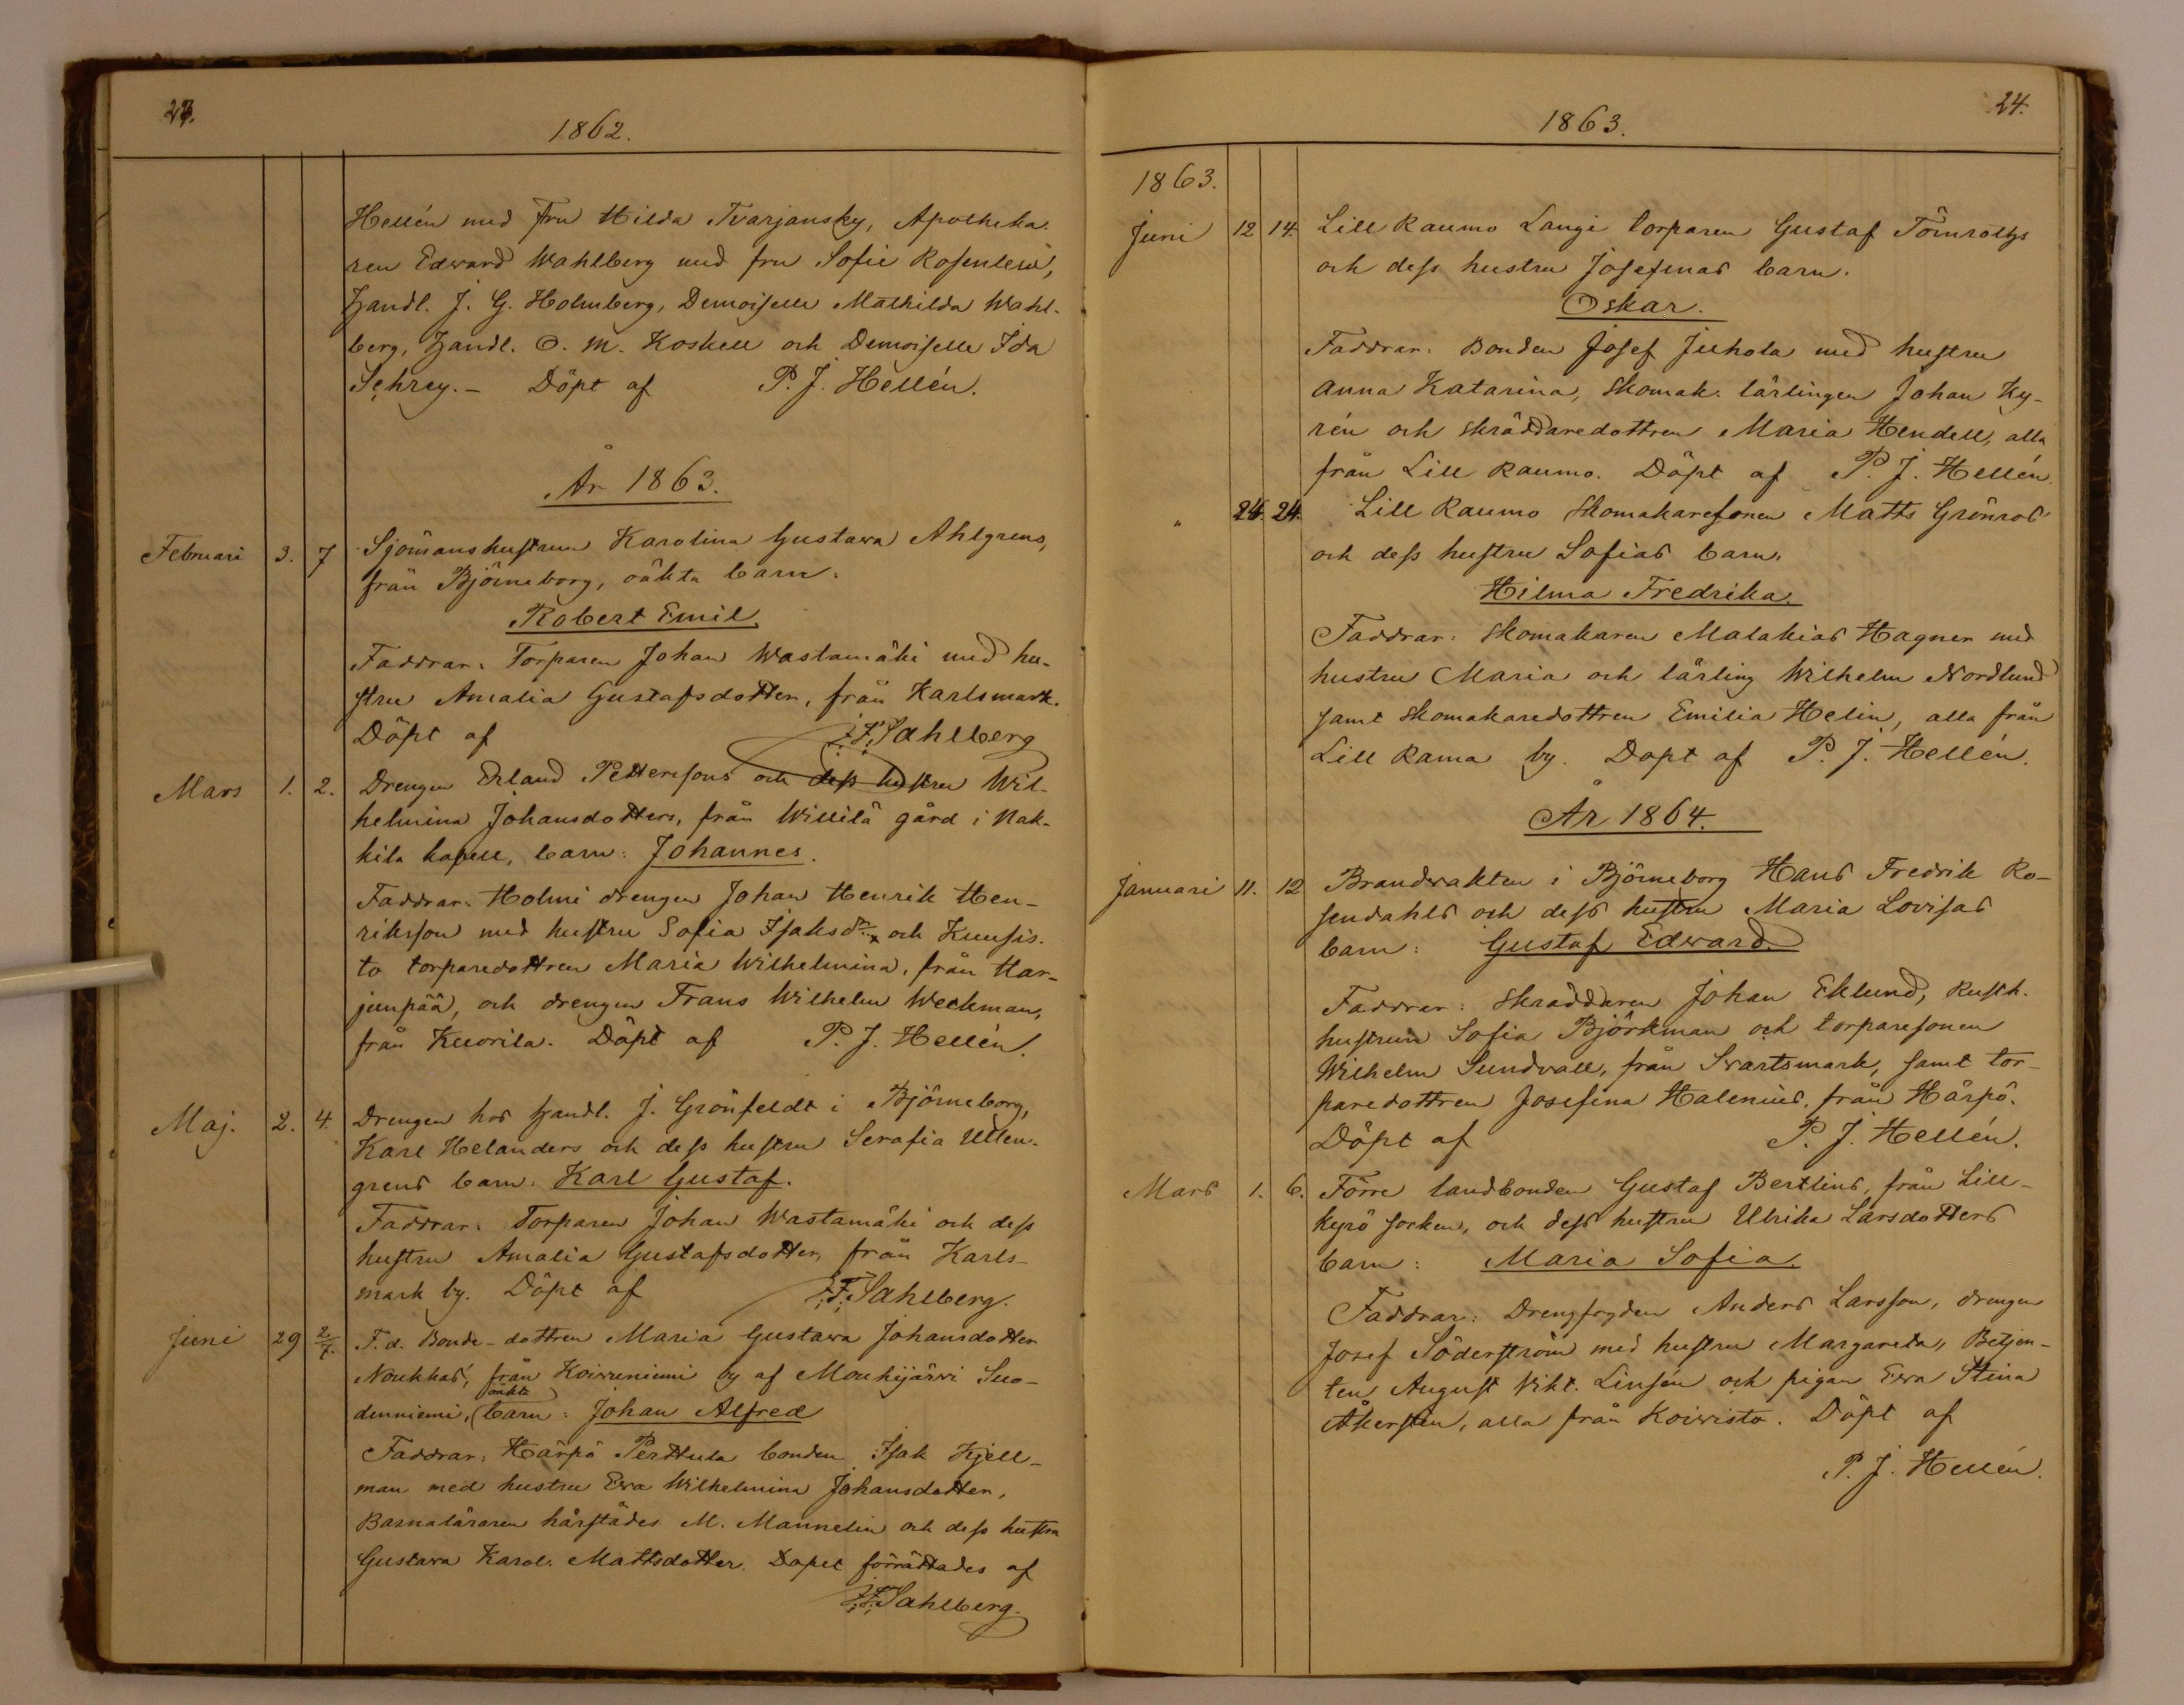 23.
1862.
Hellén med Fru Hilda Tvarjansky, Apotheka-
ren Edward Wahlberg med fru Sofie Rosenlew,
Handl. J. G. Holmberg, Demoiselle Mathilda Wahl-
berg, Handl. O. M. Koskell och Demoiselle Ida
Schrey. – Döpt af P. J. Hellén.
År 1863.
Februari 3. 7 Sjömanshustrun Karolina Gustava Ahlgrens,
från Björneborg, oäkta barn:
Robert Emil.
Faddrar: Torparen Johan Wastamäki med hu-
stru Amalia Gustafsdotter, från Karlsmark.
Döpt af F. Sahlberg
Mars 1. 2. Drengen Erland Pettersons och dess hustru Wil-
helmina Johansdotters, från Willilä gård i Nak-
kila kapell, barn: Johannes.
Faddrar: Holmi drengen Johan Henrik Hen-
riksson med hustru Sofia Isaksdr och Kuusis-
to torparedottren Maria Wilhelmina, från Har-
junpää, och drengen Frans Wilhelm Weckman,
från Kuorila. Döpt af P. J. Hellén.
Maj. 2. 4. Drengen hos Handl. J. Grönfeldt i Björneborg,
Karl Helanders och dess hustru Serafia Ullen-
grens barn: Karl Gustaf.
Faddrar: Torparen Johan Wastamäki och dess
hustru Amalia Gustafsdotter, från Karls-
mark by. Döpt af F. Sahlberg.
Juni 29 2/7. F. d. Bonde-dottren Maria Gustava Johansdotter
Noukkas, från Koivuniemi by af Mouhijärvi Suo-
oäkta
denniemi, barn: Johan Alfred
Faddrar: Härpö Perttula bonden Isak Kjell-
man med hustru Eva Wilhelmina Johansdotter,
Barnaläraren härstädes M. Mannelin och dess hustru
Gustava Karol. Mattsdotter. Dopet förrättades af
F. Sahlberg.
24.
1863.
1863.
Juni 12 14. Lill Raumo Langi torparen Gustaf Törnroths
och dess hustru Josefinas barn:
Oskar.
Faddrar: Bonden Josef Juhola med hustru
Anna Katarina, Skomak. lärlingen Johan Ky-
rén och skräddaredottren Maria Hendell, alla
från Lill Raumo. Döpt af P. J. Hellén.
" 24. 24. Lill Raumo Skomakaresonen Matts Grönros
och dess hustru Sofias barn:
Hilma Fredrika.
Faddrar: Skomakaren Malakias Hagner med
hustru Maria och lärling Wilhelm Nordlund
samt skomakaredottren Emilia Helin, alla från
Lill Rama by. Döpt af P. J. Hellén.
År 1864.
Januari 11. 12 Brandvakten i Björneborg Hans Fredrik Ro-
sendahls och dess hustru Maria Lovisas
barn: Gustaf Edward.
Faddrar: Skräddaren Johan Eklund, Rusth.
hustrun Sofia Björkman och torparesonen
Wilhelm Sundvall, från Svartsmark, samt tor-
paredottren Josefina Halenius, från Härpö.
Döpt af P. J. Hellén.
Mars 1. 6. Förre landbonden Gustaf Bertlins, från Lill-
kyrö socken, och dess hustru Ulrika Larsdotters
barn: Maria Sofia.
Faddrar: Drengfogden Anders Larsson, drengen
Josef Söderström med hustru Margareta, Betjen-
ten August Vikt. Linsén och pigan Eva Stina
Åkersten, alla från Koivisto. Döpt af
P. J. Hellén.